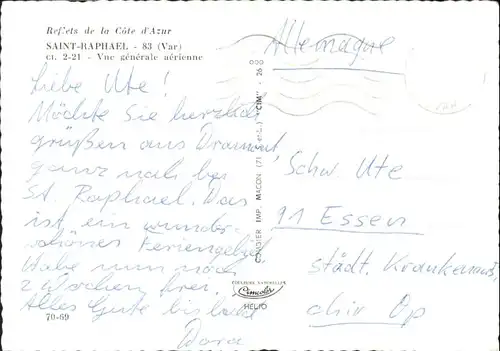 Reflets de la Côte d'Azur
SAINT-RAPHAEL - 83 (Var)
CT. 2-21 - Vue générale aérienne
Liebe Ute!
Möchte Sie herzlich
grüßen aus Dramont,
ganz nah bei
St. Raphael. Das
ist ein wunder-
schönes Feriengebiet
Habe nun noch
2 Wochen frei.
Alles Gute bis bald
Dora
70-69
COMBIER IMP. MACON (71 S.-et-L.) "CIM" - 26
COULEURS NATURELLES
Cimcolor
HELIO
Allemagne
Schw. Ute
91 Essen
Städt. Krankenanst.
chir Op